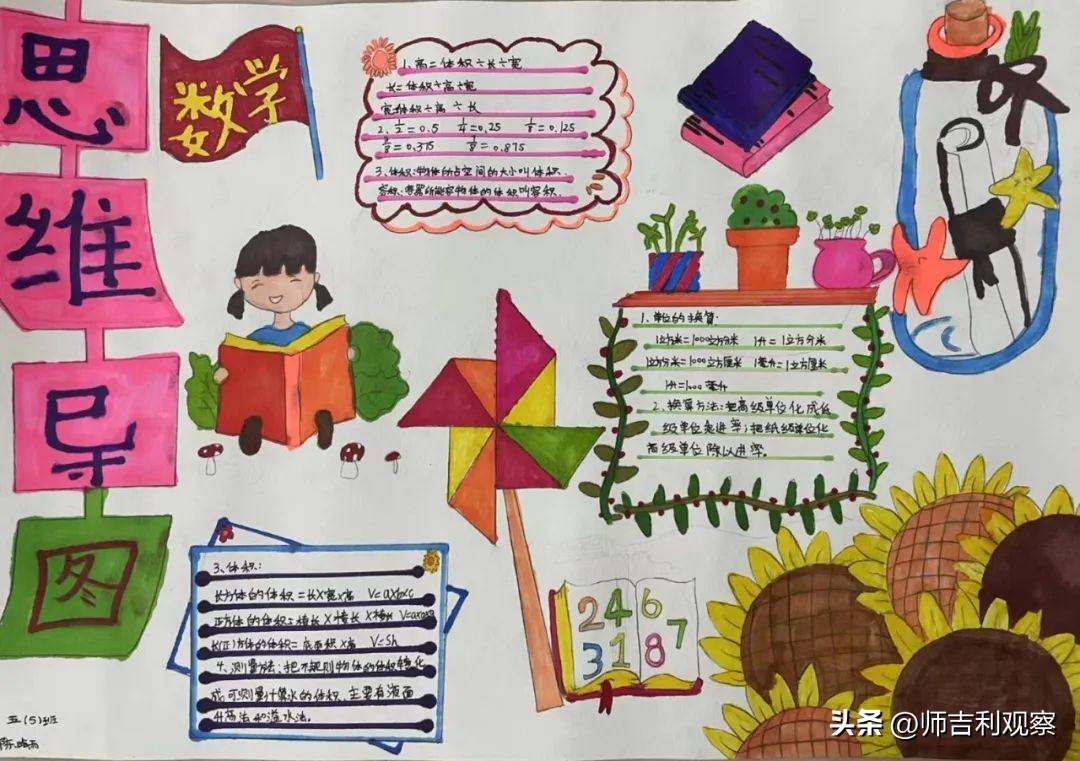 思维导图
数学
1、高=体积÷长÷宽
长=体积÷高÷宽
宽=体积÷高÷长
2、1/2=0.5 1/4=0.25 1/8=0.125
3/8=0.375 7/8=0.875
3、体积:物体的占空间的大小叫体积.
容积:容器所能容物体的体积叫容积.
1、单位的换算:
1立方米=1000立方分米 1升=1立方分米
1立方分米=1000立方厘米 1毫升=1立方厘米
1升=1000毫升
2、换算方法:把高级单位化成低
级单位乘进率;把纸级单位化
高级单位除以进率。
3、体积:
长方体的体积=长×宽×高 V=a×b×c
正方体的体积=棱长×棱长×棱长 V=a×a×a
长(正)方体的体积=底面积×高 V=Sh
4、测量方法:把不规则物体的体积转化
成可测量计算水的体积.主要有液面
升高法和溢水法。
2 4 6
3 1 8 7
五(5)班
头条 @师吉利观察